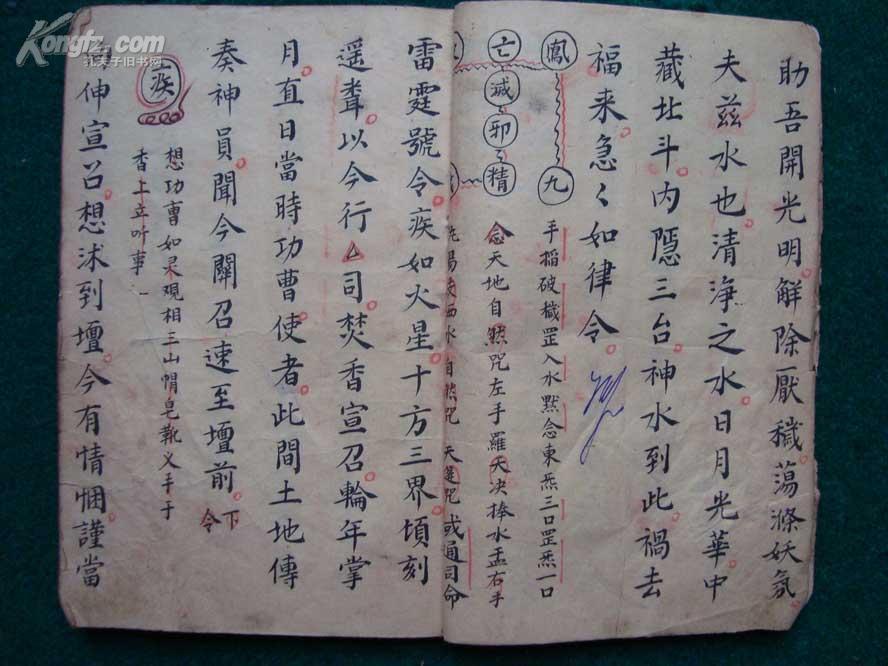 助吾開光明解除厭穢蕩滌妖氛
夫兹水也清净之水日月光華中
藏北斗内隱三台神水到此禍去
福来急〻如律令
鳳
九
手掐破穢罡入水默念東炁三口罡炁一口
亡
滅
邪
精
念天地自然咒左手羅天决捧水盂右手
水自然咒 天蓬咒 或通司命
雷霆號令疾如火星十方三界頃刻
遥聞以今行厶司焚香宣召輪年掌
月直日當時功曹使者此間土地傳
奏神員聞今關召速至壇前下令
疾
想功曹如杲观相三山帽皂靴义手于
香上立听事
伸宣召想沭到壇今有情悃謹當
Kongfz.com
孔夫子旧书网